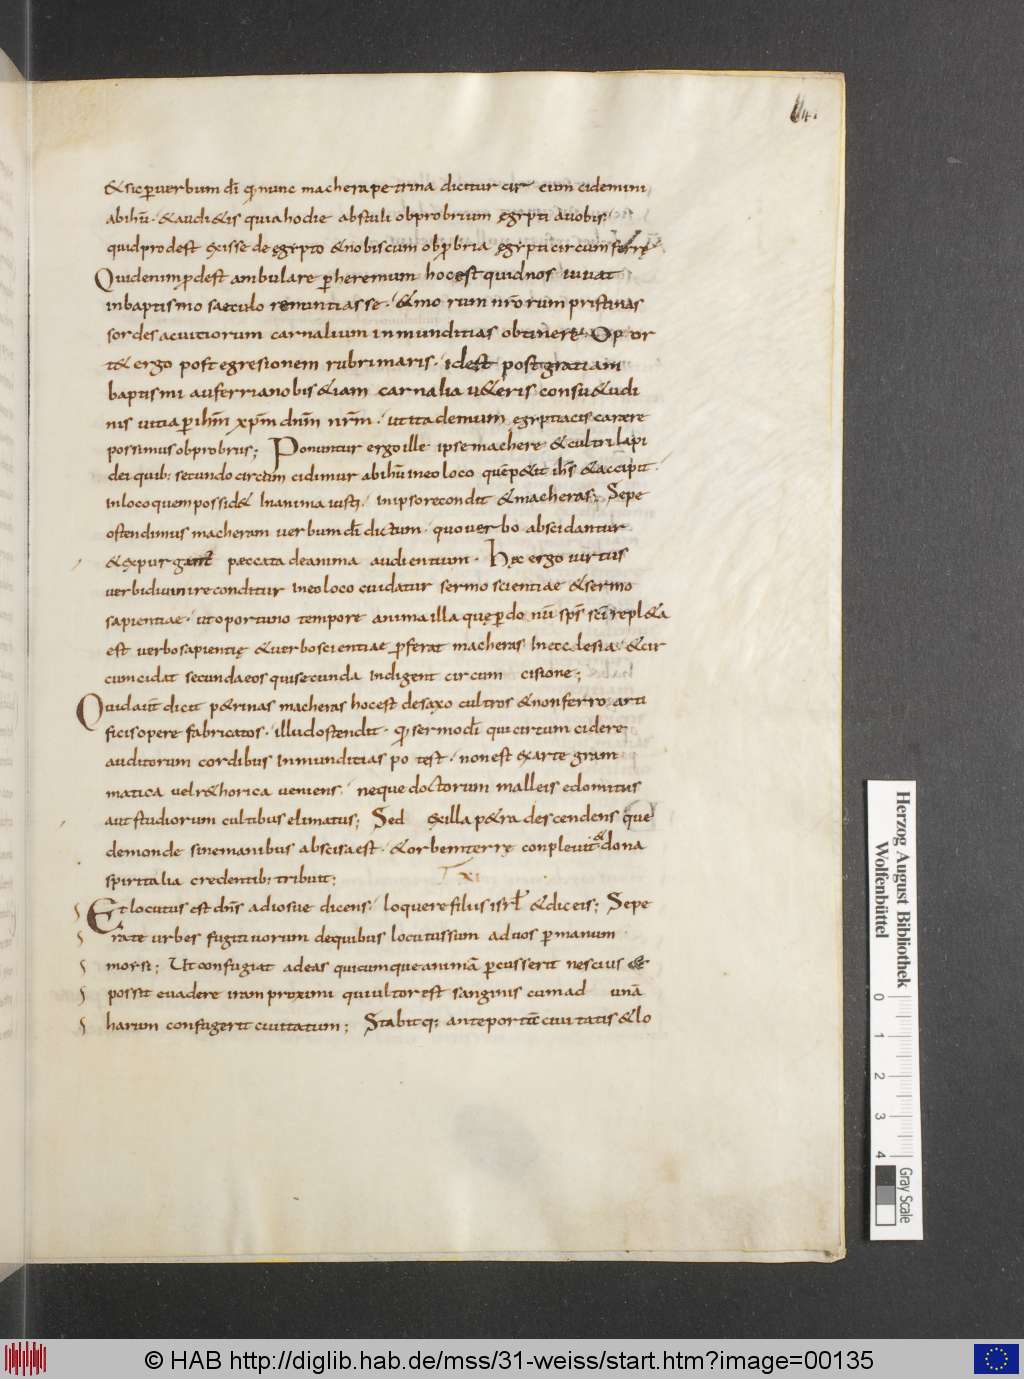 64.
&sic ꝑ verbum dī q nunc machera petrina dicitur cir cum cidemini
abihū. &audi&is quia hodie abstuli obprobrium egypti auobis
quid prodest exisse de egypto &nobiscum obprbria egypti circumferre
Quid enim ꝓdest ambulare ꝑ heremum hoc est quid nos iuuat
inbaptismo saeculo renuntiasse. &mo rum nr̄orum pristinas
sordes ac uitiorum carnalium inmunditias obtinere. Opor
t& ergo post egresionem rubri maris. id est post gratiam
baptismi auferri anobis &iam carnalia u&eris consu&udi
nis uitia ꝑ ihm̄ xp̄m dnm̄ nr̄m. ut ita demum egyptiacis carere
possimus obprobriis; Ponuntur ergo ille ipse machere &cultri lapi
dei quib; secundo circum cidimur abihū in eo loco
in loco quem possid& In anima iusti. in ipso recondit &macheras; Sepe
ostendimus macheram uerbum dī dictum. quo uerbo abscidantur
&expurgant peccata de anima audientium. Hec ergo uirtus
uerbi diuini reconditur in eo loco cui datur sermo scientiae &sermo
sapientiae. ut oportuno tempore anima illa quę ꝑ donū sp̄s sc̄i repl&a
est uerbo sapientię &uerbo scientiae ꝓferat macheras In ecclesia. &cir
cumcidat secunda eos qui secunda Indigent circum cisione;
Quid aut̄ dicit p&rinas macheras hoc est de saxo cultros &non ferro arti
ficis opere fabricatos. illud ostendit. q sermo dī qui cirtum cidere
auditorum cordibus Inmunditias po test. non est ex arte gram
matica uel r&horica ueniens. neque doctorum malleis edomitus
aut studiorum cultibus elimatus; Sed ex illa p&ra descendens que
de monde sine manibus abscisa est. &orbem terrę conpleuit & dona
spiritalia credentib; tribuit;
XI
Et locutus est dn̄s ad iosue dicens. loquere filiis isrl̄ &dic eis; Sepe
rate urbes fugitiuorum de quibus locutus sum ad uos ꝑ manum
morsi; Ut confugiat ad eas quicumque animā ꝑcusserit nescius
possit euadere iram proximi qui ultor est sanginis cum ad unā
harum confugerit ciuitatum; Stabitq; ante portā ciuitatis &lo
Herzog August Bibliothek
Wolfenbüttel
0 1 2 3 4
Gray Scale
© HAB http://diglib.hab.de/mss/31-weiss/start.htm?image=00135